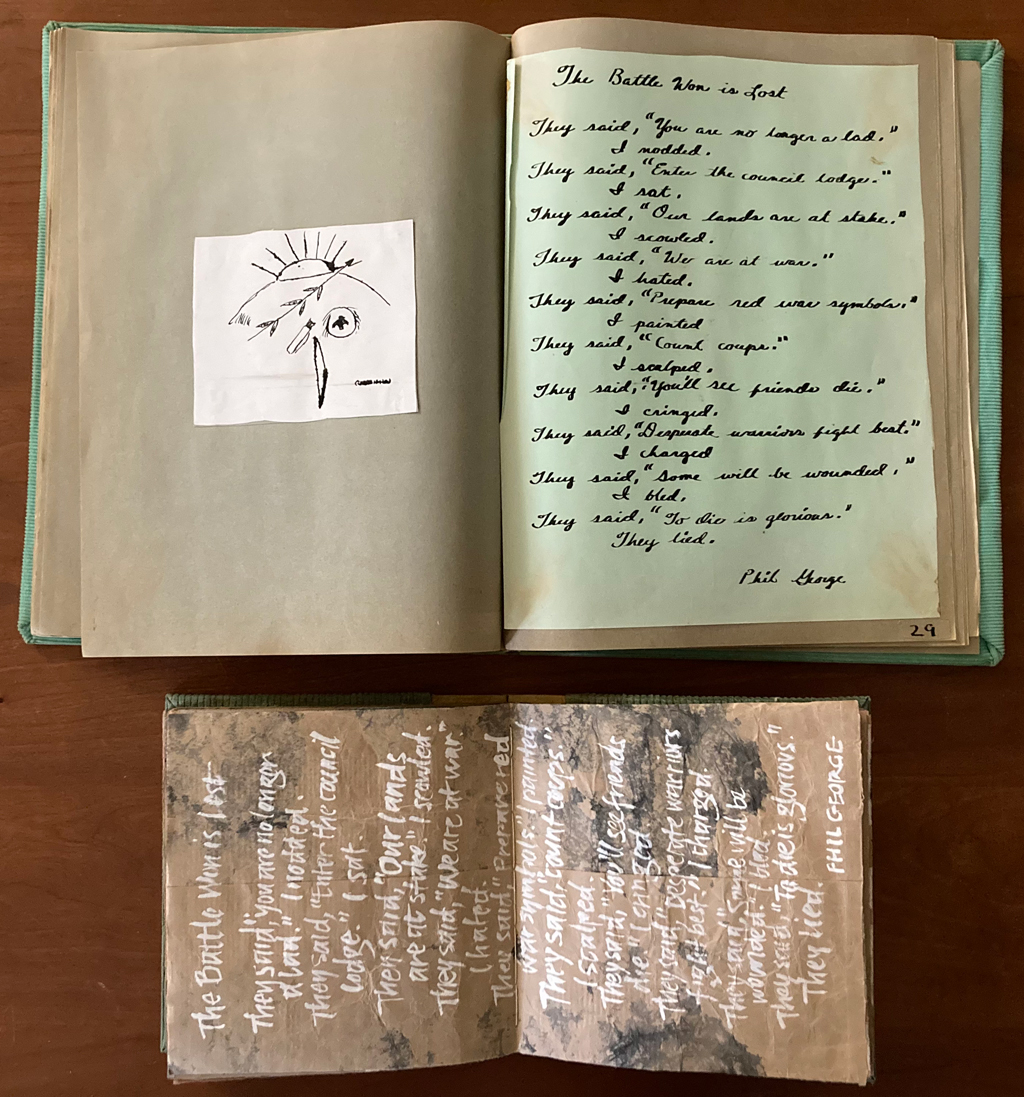 The Battle Won is Lost
They said, "You are no longer a lad."
I nodded.
They said, "Enter the council lodge."
I sat.
They said, "Our lands are at stake."
I scowled.
They said, "We are at war."
I hated.
They said, "Prepare red war symbols."
I painted
They said, "Count coups."
I scalped.
They said, "You'll see friends die."
I cringed.
They said, "Desperate warriors fight best."
I charged
They said, "Some will be wounded."
I bled.
They said, "To die is glorious."
They lied.
Phil George
29
The Battle Won is Lost
They said, "You are no longer
a lad." I nodded.
They said, "Enter the council
lodge." I sat.
They said, "Our lands
are at stake." I scowled.
They said, "We are at war."
I hated.
They said, "Prepare red
war symbols." I painted
They said, "Count coups."
I scalped.
They said, "You'll see friends
die." I cringed
They said, "Desperate warriors
fight best." I charged.
They said, "Some will be
wounded." I bled.
They said, "To die is glorious."
They lied.
PHIL GEORGE